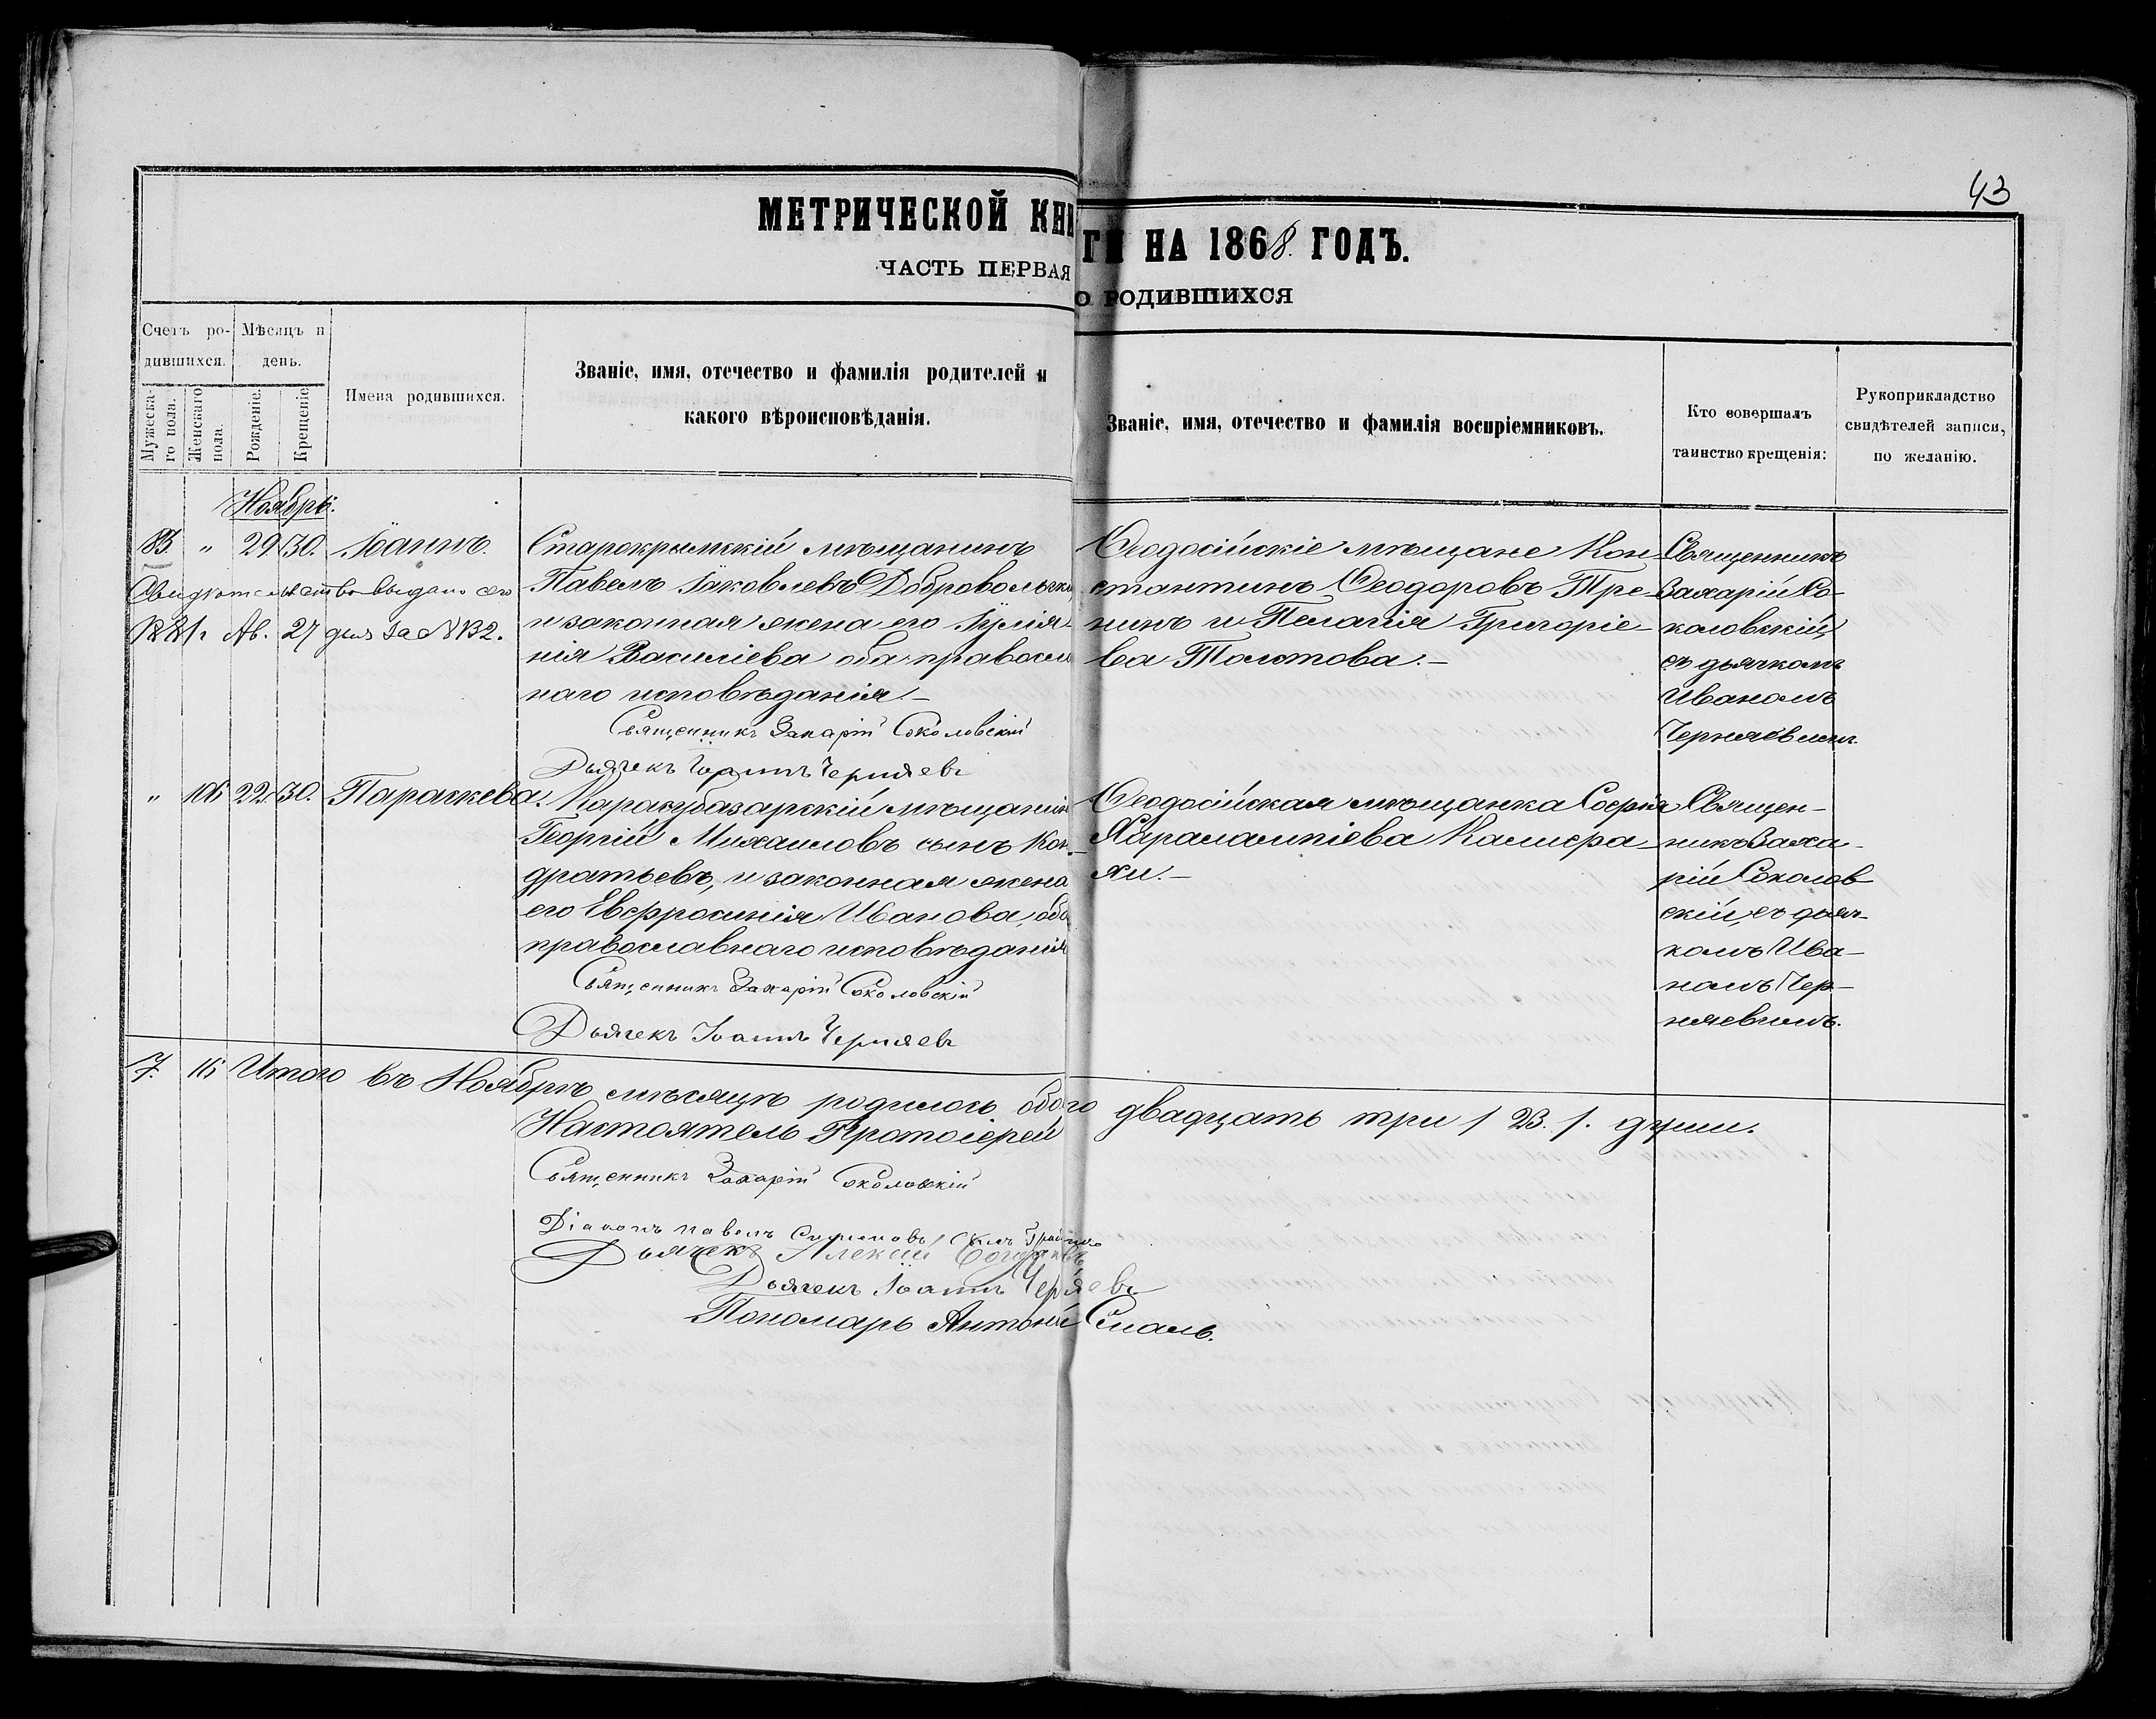 43
МЕТРИЧЕСКОЙ КНИГИ НА 1868. ГОДЪ.
ЧАСТЬ ПЕРВАЯ О РОДИВШИХСЯ
Счетъ ро-
дившихся.
Мѣсяцъ и
день.
Мужеска-
го пола.
Женскаго
пола.
Рожденіе.
Крещеніе.
Имена родившихся.
Званіе, имя, отечество и фамилія родителей и
какого вѣроисповѣданія.
Званіе, имя, отечество и фамилія воспріемниковъ.
Кто совершалъ
таинство крещенія:
Рукоприкладство
свидѣтелей записи,
по желанію.
Ноябрь.
83. " 29 30. Іоаннъ.
Свидѣтельство выдано сего
Ав. 27 дня за №
Старокрымскій мѣщанинъ
Павелъ Іаковлевъ
и законная жена его Іуліа-
нія Василіева оба православ
наго исповѣданія.—
Священникъ Захарій Соколовскій
Дьячекъ Іоаннъ Черняевъ
Ѳеодосійскіе мѣщане Кон-
стантинъ Ѳеодоровъ Тре-
нинъ и Пелагія Григоріе-
ва Толстова.—
Священникъ
Захарій Со-
коловскій,
съ дьячкомъ
Иваномъ
Черняевымъ.
" 106 22. 30. Параскева.
Карасубазарскій мѣщанинъ
Георгій Михаиловъ сынъ Кон-
дратьевъ, и законная жена
его Евфросинія Иванова, оба
православнаго исповѣданія
Священникъ Захарій Соколовскій
Дьячекъ Іоаннъ Черняевъ
Ѳеодосійская мѣщанка Софія
Харалампіева Калиера-
хи.—
Священ-
никъ Заха-
рій Соколов
скій, съ дьяч-
комъ Ива-
номъ Чер-
няевымъ.
7. 16 Итого въ Ноябрѣ мѣсяцѣ родилось обого двадцать три / 23. /. души.
Настоятель Протоіерей
Священникъ Захарій Соколовскій
Діаконъ Павелъ
Дьячекъ Алексій
Дьячекъ Іоаннъ Черняевъ
Пономарь Антоній